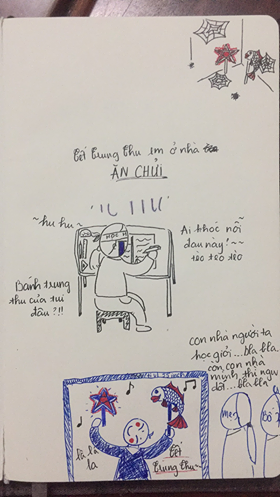 Tết trung thu em ở nhà
ĂN CHỬI
~hu hu~
HỌC
Ai thóc nỗi
đau này!~~
tèo teo tèo
Bánh trung
thu của tui
đâu ?!!
con nhà người ta
học giỏi...bla bla
còn con nhà
mình thì ngu
dốt...bla bla
là là
la
Tết
trung thu~
Mẹ
Bố